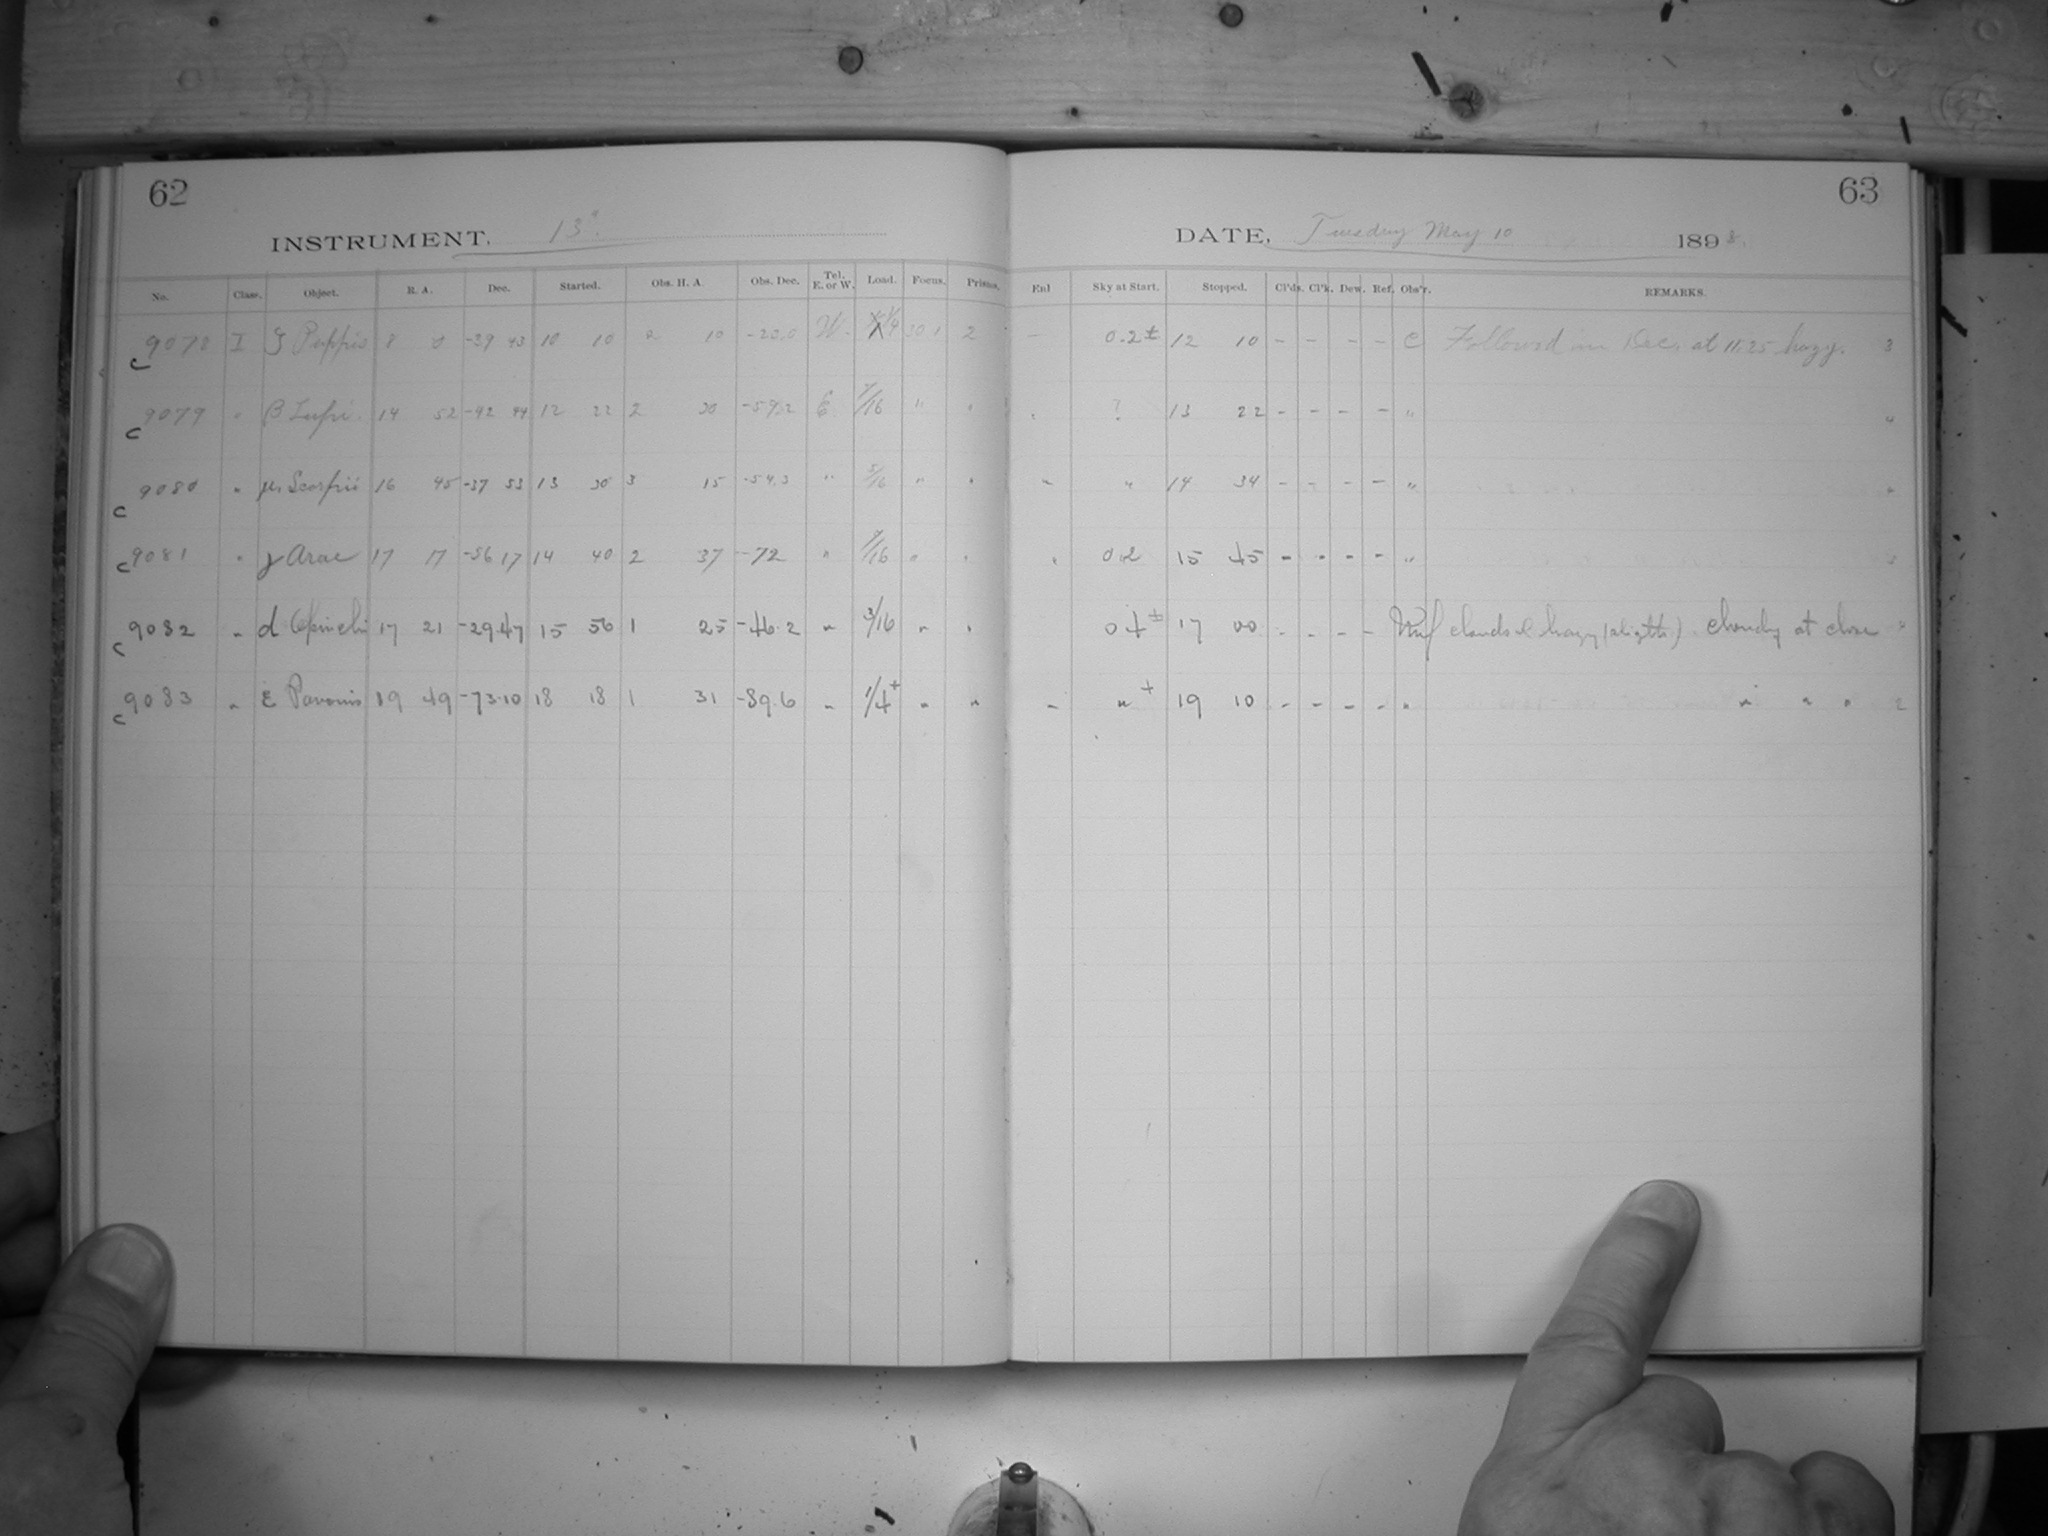 62
63
INSTRUMENT, 13".
DATE, Tuesday May 10 1898.
No. Class. Object. R. A. Dec. Started. Obs. H. A. Obs. Dec. Tel. E. or W. Load. Focus. Prisms. Enl Sky at Start. Stopped. Cl'ds. Cl'k. Dew. Ref. Obs'r. REMARKS.
c 9078 I ζ Puppis 8 0 -39 43 10 10 2 10 W. 30.1 2 - 0.2± 12 10 - - - - C Followed in Dec. at 11.25 hazy. 3
c 9079 " β Lupi. 14 52 -42 44 12 22 2 30 -59.2 E. 7/16 " " " ? 13 22 - - - - " "
c 9080 " μ, Scorpii 16 45 -37 53 13 30 3 15 -54.3 " 5/16 " " " " 14 34 - - - - " "
c 9081 " γ Arae 17 17 -56 17 14 40 2 37 -72 " 7/16 " " " 0.2 15 45 - - - - " 3
c 9082 " d Ophiuchi 17 21 -29.47 15 56 1 25 -46.2 " 3/16 " " 04± 17 00 - - - - clouds & hazy (slightly). cloudy at close "
c 9083 " ε Pavonis 19 49 -73.10 18 18 1 31 -89.6 " 1/4+ " " " "+ 19 10 - - - - " " " " 2